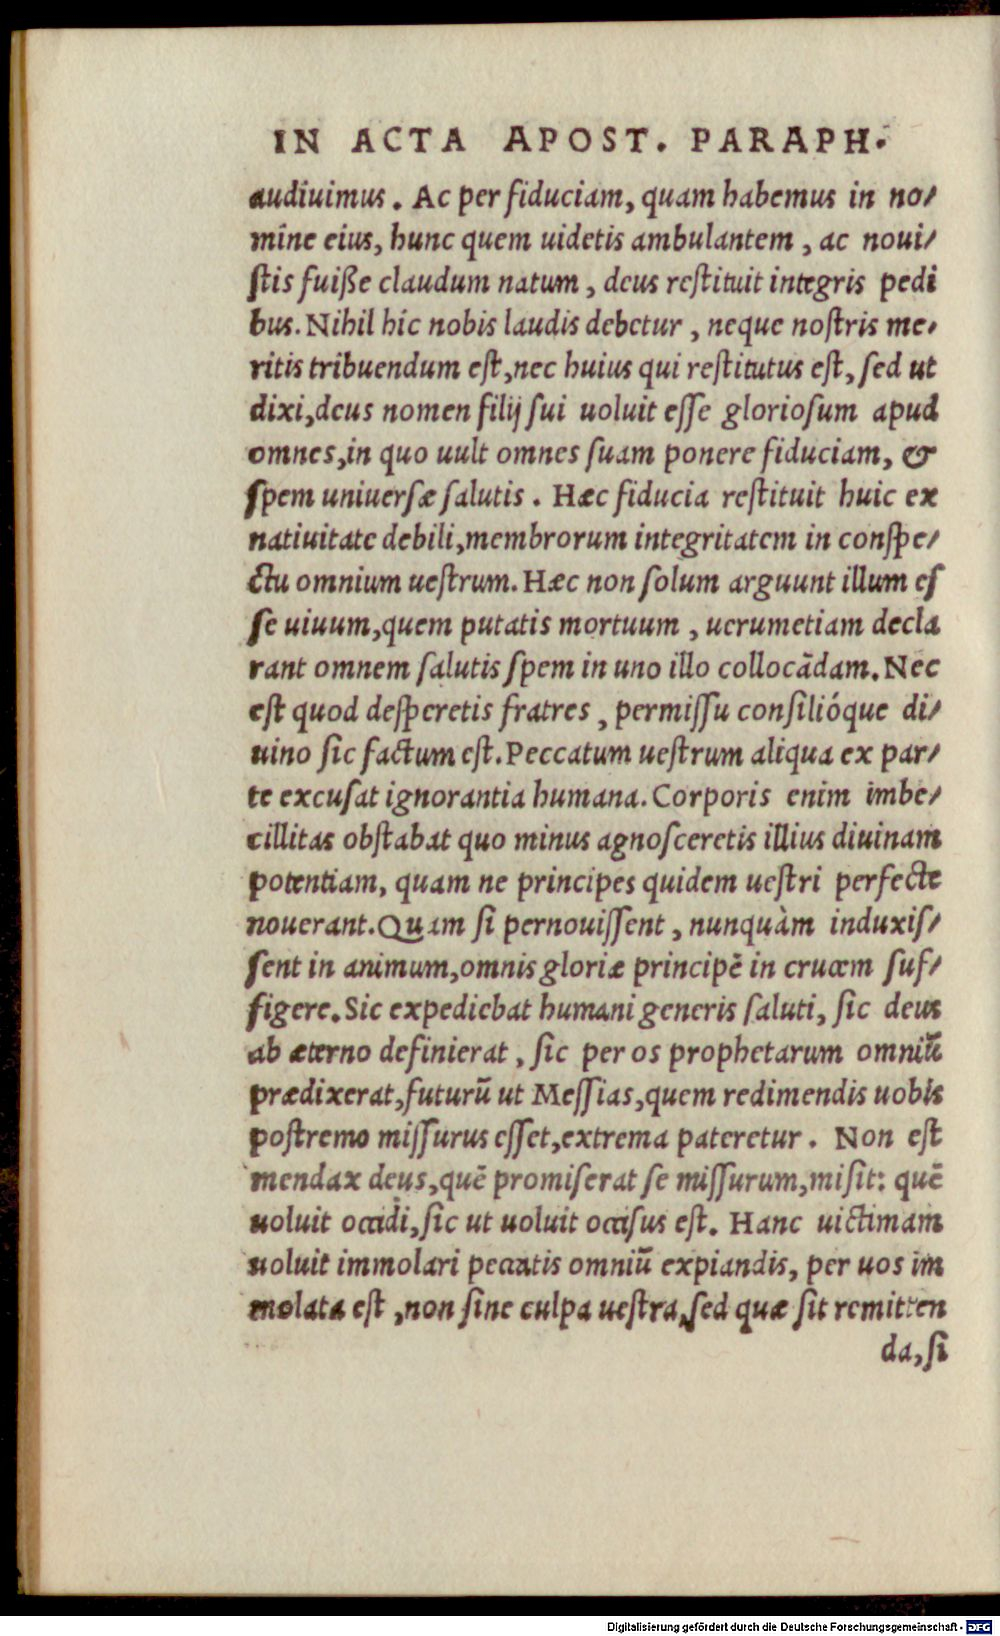 IN ACTA APOST. PARAPH.
audiuimus. Ac per fiduciam, quam habemus in no/
mine eius, hunc quem uidetis ambulantem, ac noui/
ſtis fuiße claudum natum, deus reſtituit integris pedi
bus. Nihil hic nobis laudis debetur, neque noſtris me/
ritis tribuendum eſt, nec huius qui reſtitutus eſt, ſed ut
dixi, deus nomen filij ſui uoluit eſſe glorioſum apud
omnes, in quo uult omnes ſuam ponere fiduciam, &
ſpem uniuerſæ ſalutis. Hæc fiducia reſtituit huic ex
natiuitate debili, membrorum integritatem in conſpe/
ctu omnium ueſtrum. Hæc non ſolum arguunt illum eſ
ſe uiuum, quem putatis mortuum, uerumetiam decla
rant omnem ſalutis ſpem in uno illo collocãdam. Nec
eſt quod deſperetis fratres, permiſſu conſilióque di/
uino ſic factum eſt. Peccatum ueſtrum aliqua ex par/
te excuſat ignorantia humana. Corporis enim imbe/
cillitas obſtabat quo minus agnoſceretis illius diuinam
potentiam, quam ne principes quidem ueſtri perfecte
nouerant. Quam ſi pernouiſſent, nunquàm induxiſ/
ſent in animum, omnis gloriæ principẽ in crucem ſuf/
figere. Sic expediebat humani generis ſaluti, ſic deus
ab æterno definierat, ſic per os prophetarum omniũ
prædixerat, futurũ ut Meſſias, quem redimendis uobis
poſtremo miſſurus eſſet, extrema pateretur. Non eſt
mendax deus, quẽ promiſerat ſe miſſurum, miſit: quẽ
uoluit occidi, ſic ut uoluit occiſus eſt. Hanc uictimam
uoluit immolari peccatis omniũ expiandis, per uos im
molata eſt, non ſine culpa ueſtra, ſed quæ ſit remitten
da, ſi
Digitalisierung gefördert durch die Deutsche Forschungsgemeinschaft - DFG